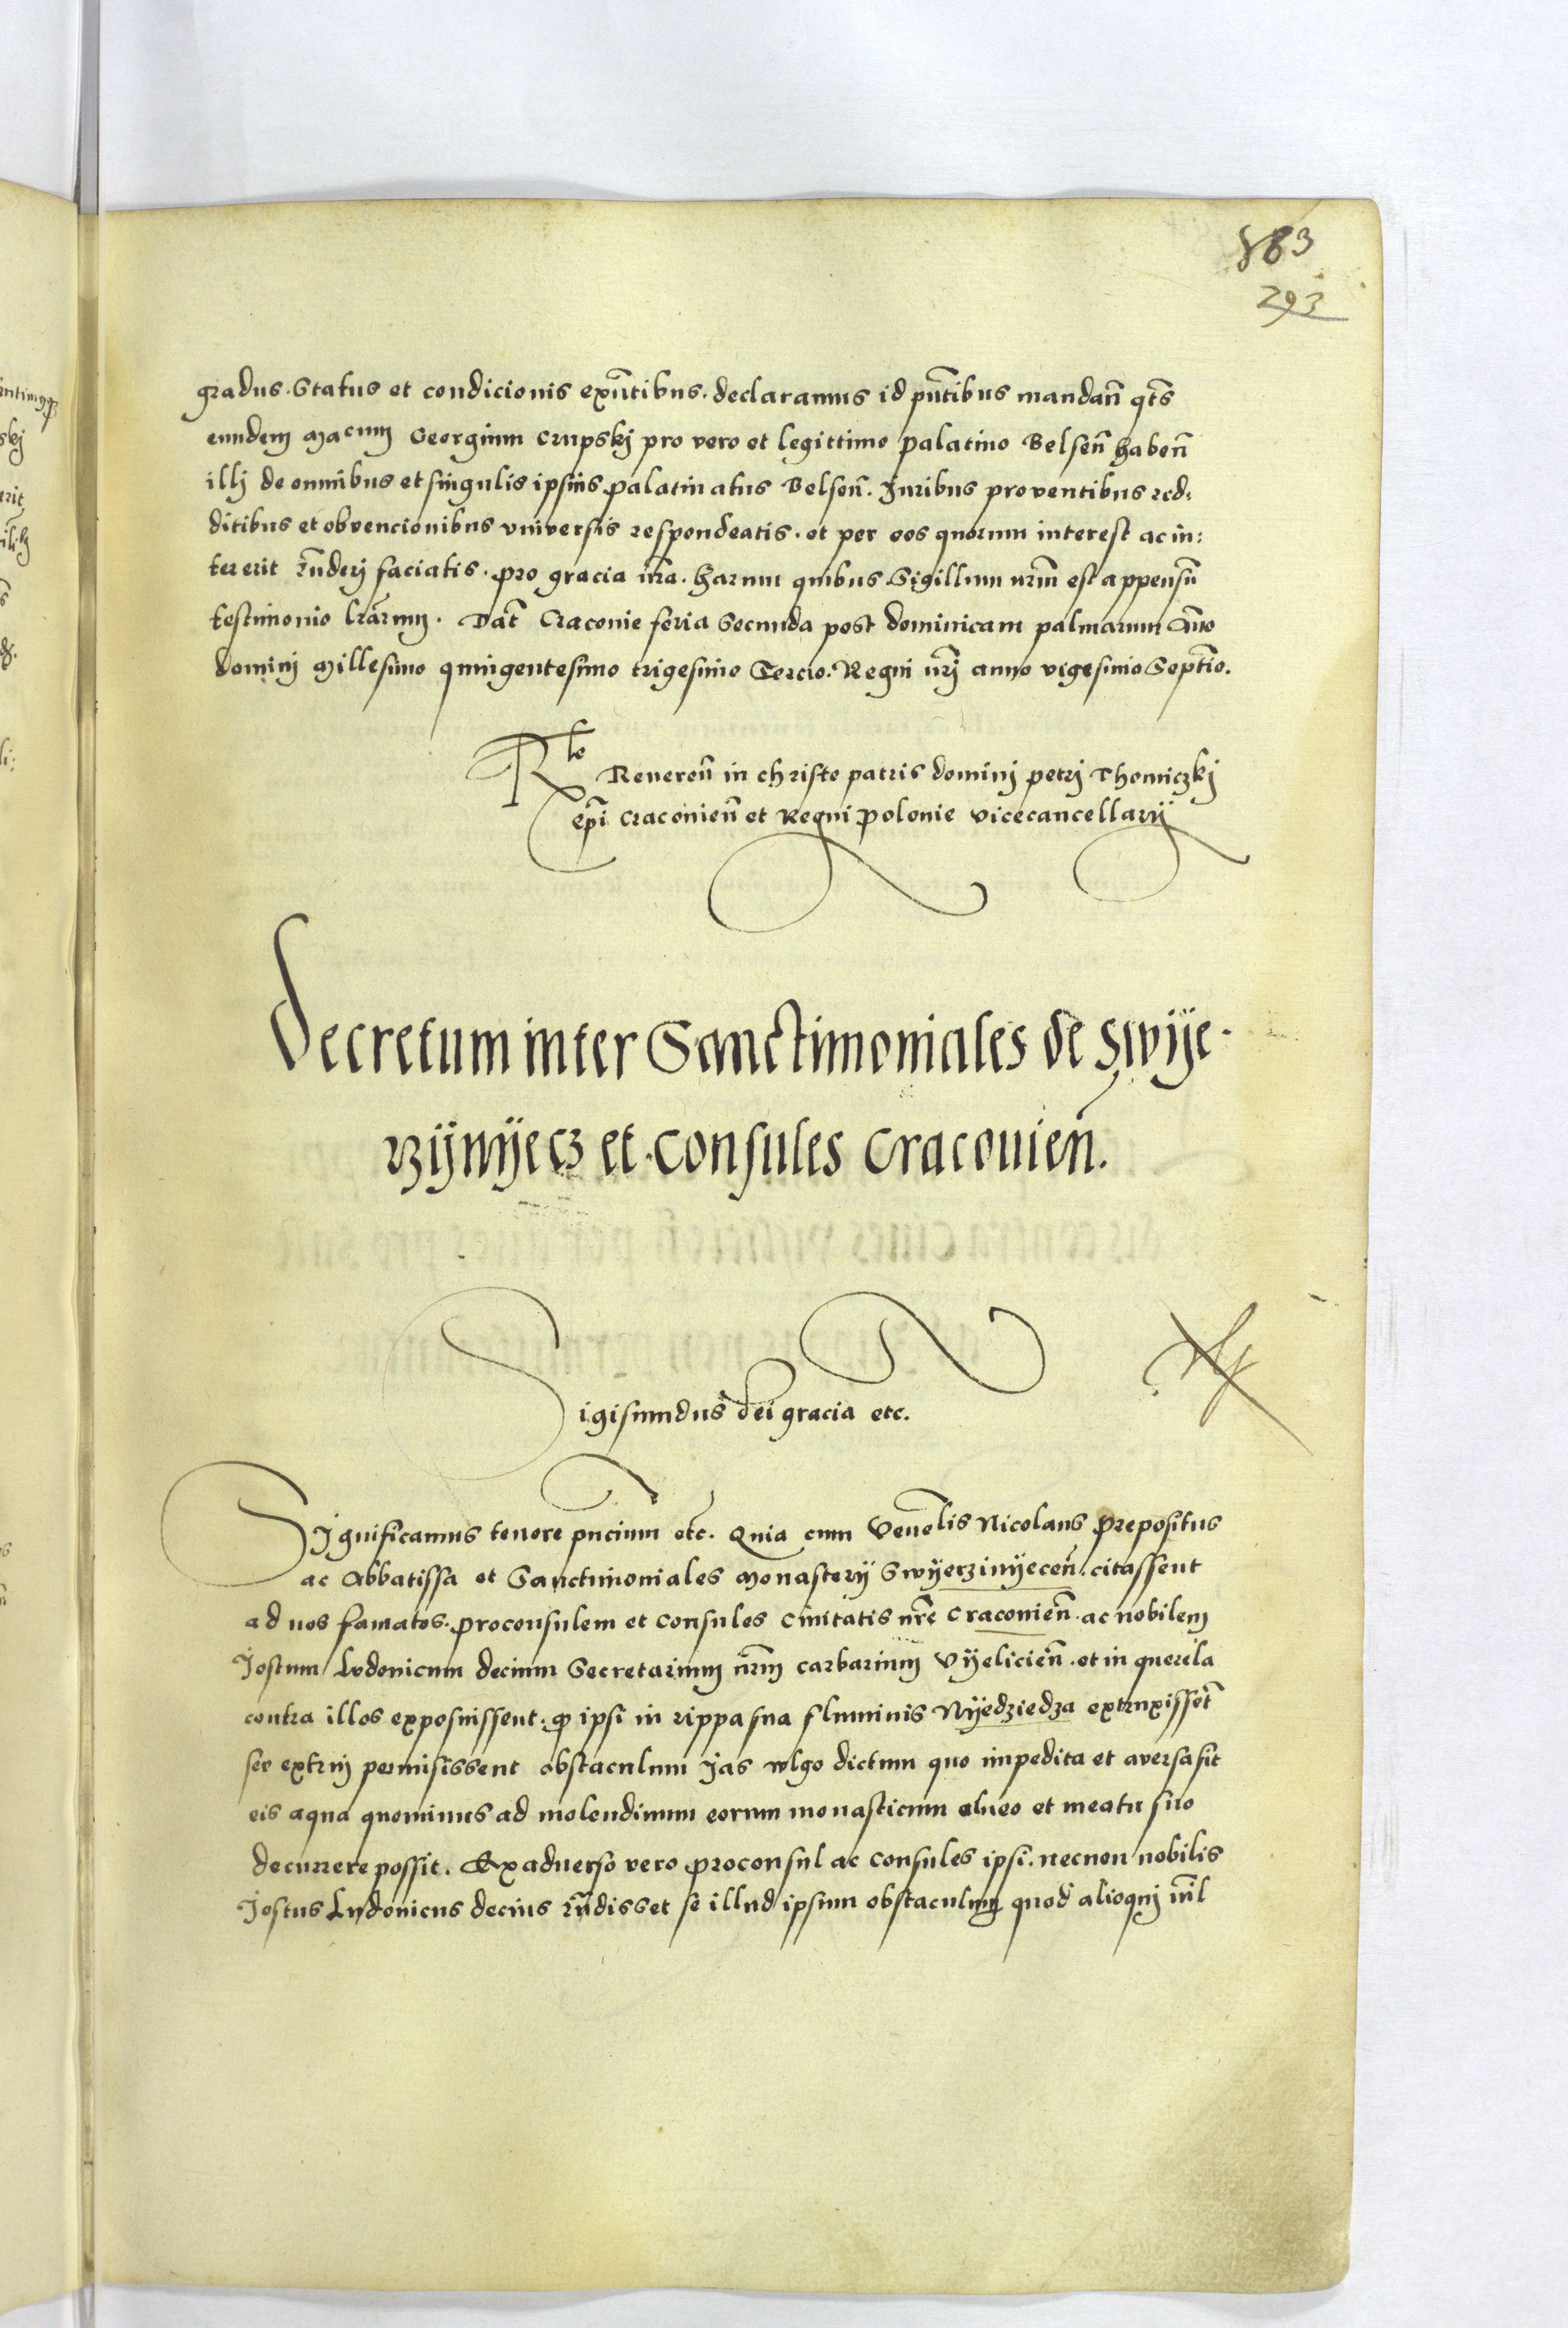 863
293
gradus. Status et condicionis exñtibus. declaramus id pñtibus mandañ qt̃s
eundem Macum Georgium Crupskj pro vero et legittimo palatino Belseñ habeñ
illj de omnibus et singulis ipsius palatinatus Belseñ. Juribus proventibus red:
ditibus et obvencionibus vniversis respondeatis. et per eos quorum interest ac in:
tererit rñderj faciatis. pro gracia nr̃a. harum quibus Sigillum nrm̃ est appensũ
testimonio lrãrum. Dat̃ Cracouie feria Secunda post dominicam palmarum Año
dominj Millesimo quingentesimo trigesimo Tercio. Regni nrj̃ anno vigesimo Septĩo.
Rle Reuereñ in christo patris dominj petrj Thomiczkj
ep̃i Cracouieñ et Regni polonie vicecancellarÿ
Decretum inter Sanctimoniales de Swÿe-
rzÿnÿecz et Consules Cracouień.
Sigismundus dei gracia etc.
Significamus tenore pñcium etc. Quia cum Veuelis Nicolaus prepositus
ac Abbatissa et Sanctimoniales Monasterÿ Swÿerzinÿeceñ. citassent
ad nos famatos. proconsulem et Consules Ciuitatis nrẽ Cracouieñ. ac nobilem
Jostum Lvdouicum decium Secretarium nrm̃ carbarium Vÿelicieñ. et in querela
contra illos exposuissent. ꝙ ipsi in rippa sua fluminis Nÿedziedza extruxissẽt
seu extruj permisissent obstaculum Jas wlgo dictum quo impedita et aversa sit
eis aqua quominus ad molendinum eorum monasticum alueo et meatu suo
decurrere possit. Ex aduerso vero proconsul ac Consules ipsi. necnon nobilis
Jostus Ludouicus decius rñdisset se illud ipsum obstaculum quod alioquj nil̃